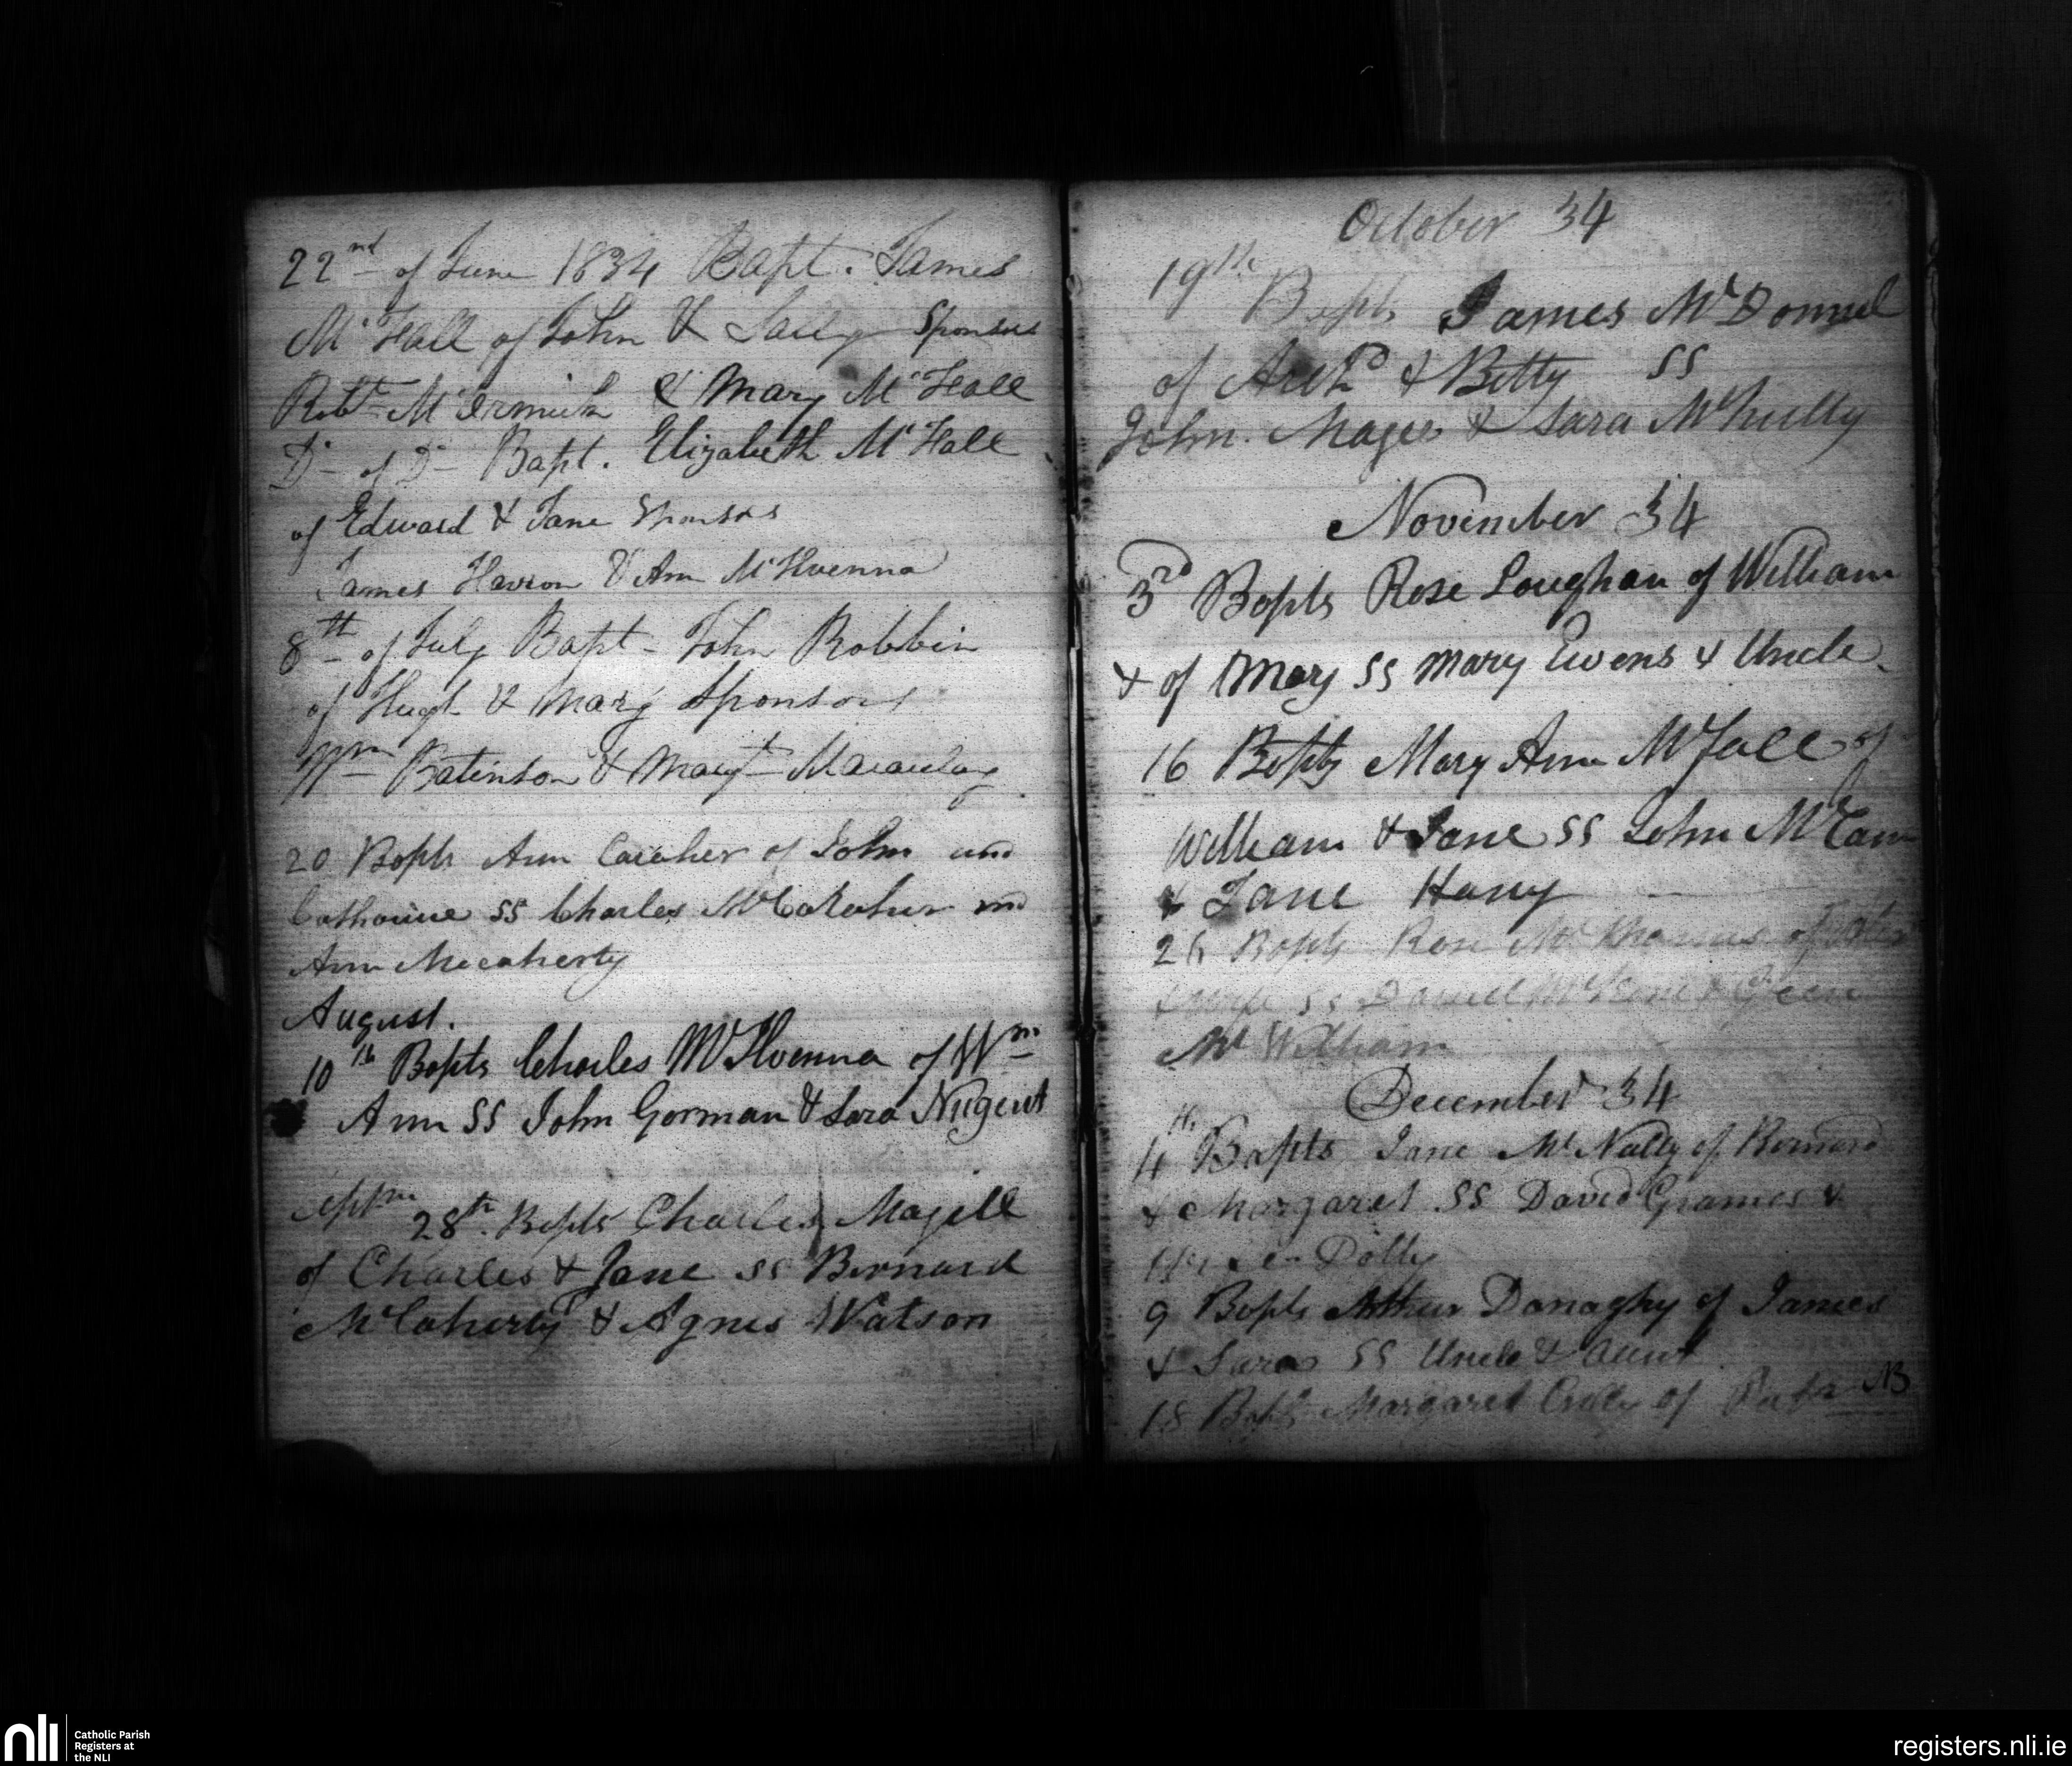 22nd of June 1834 Bapt. James
McFall of John & Sally Sponsors
Robt McCrmick & Mary McFall
Do of Do Bapt. Elizabeth McFall
of Edward & Jane Sponsors
James Havron & Ann McIlvenna
8th of July Bapt John Robbin
of Hugh & Mary Sponsors
Wm Batinson & Margt Macaulay
20 Bapts Ann Caraher of John and
Catharine SS Charles McCaraher and
Ann Mecaherty
August.
10th Bapts Charles McIlvenna of Wm
Ann SS John Gorman & Sara Nugent
28th Bapts Charles Magill
of Charles & Jane SS Bernard
McCaherty & Agnes Watson
October 34
19th
Bapts James McDonnel
of & Betty SS
John Magee & Sara McNully
November 34
3rd Bapts Rose Loughan of William
& of Mary SS Mary Ewens & Uncle
16 Bapts Mary Ann McFall of
William & Jane SS John McCann
& Jane Hany
26 Bapts Rose of
SS Daniel
Mc William
December 34
4th Bapts Jane McNally of Bernard
& Margaret SS David Grames &
Dolly
9 Bapts Arthur Donaghy of James
& Sara SS Uncle & Aunt
18 Bapts Margaret Crilly of NB
nli
Catholic Parish
Registers at
the NLI
registers.nli.ie